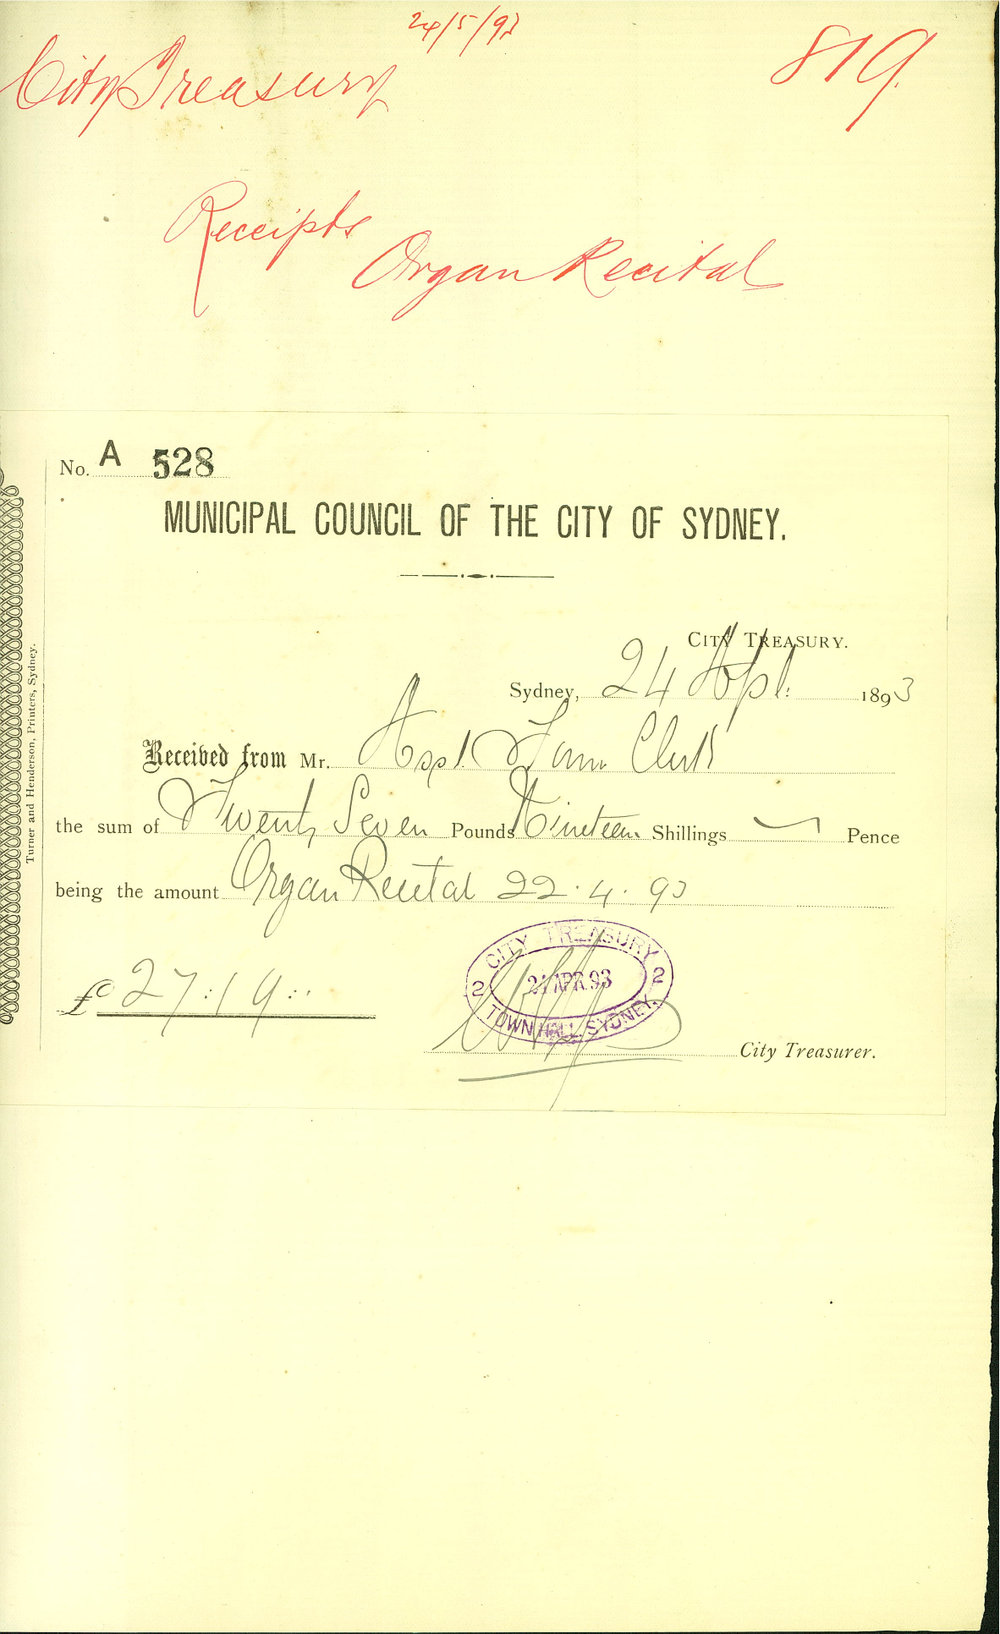 24/5/93
City Treasury
819.
Receipts
Organ Recital
No. A 528
MUNICIPAL COUNCIL OF THE CITY OF SYDNEY.
CITY TREASURY.
Sydney, 24 Apl. 1893
Received from Mr. Asst. Town Clerk
the sum of Twenty Seven Pounds Nineteen Shillings — Pence
being the amount Organ Recital 22.4.93
£ 27:19:
CITY TREASURY
2 24 APR.93 2
TOWN HALL SYDNEY.
City Treasurer.
Turner and Henderson, Printers, Sydney.